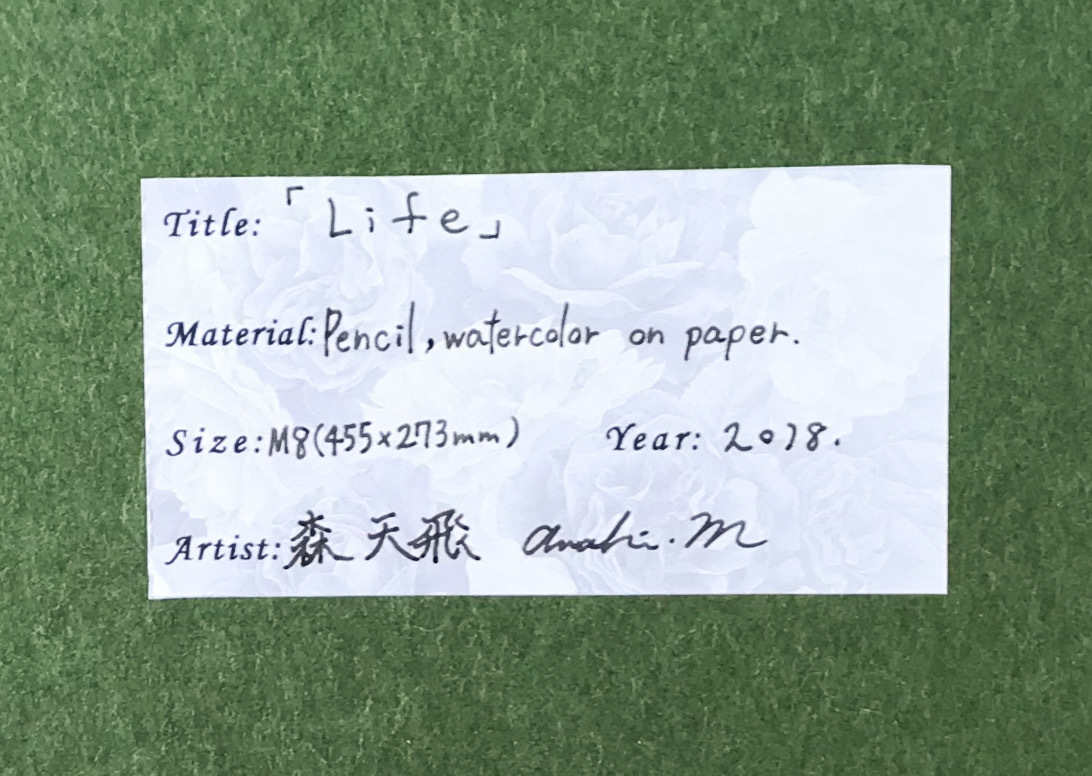 Title: 「Life」
Material: Pencil, watercolor on paper.
Size: M8(455×273mm) Year: 2018.
Artist: 森 天飛 amahi. M